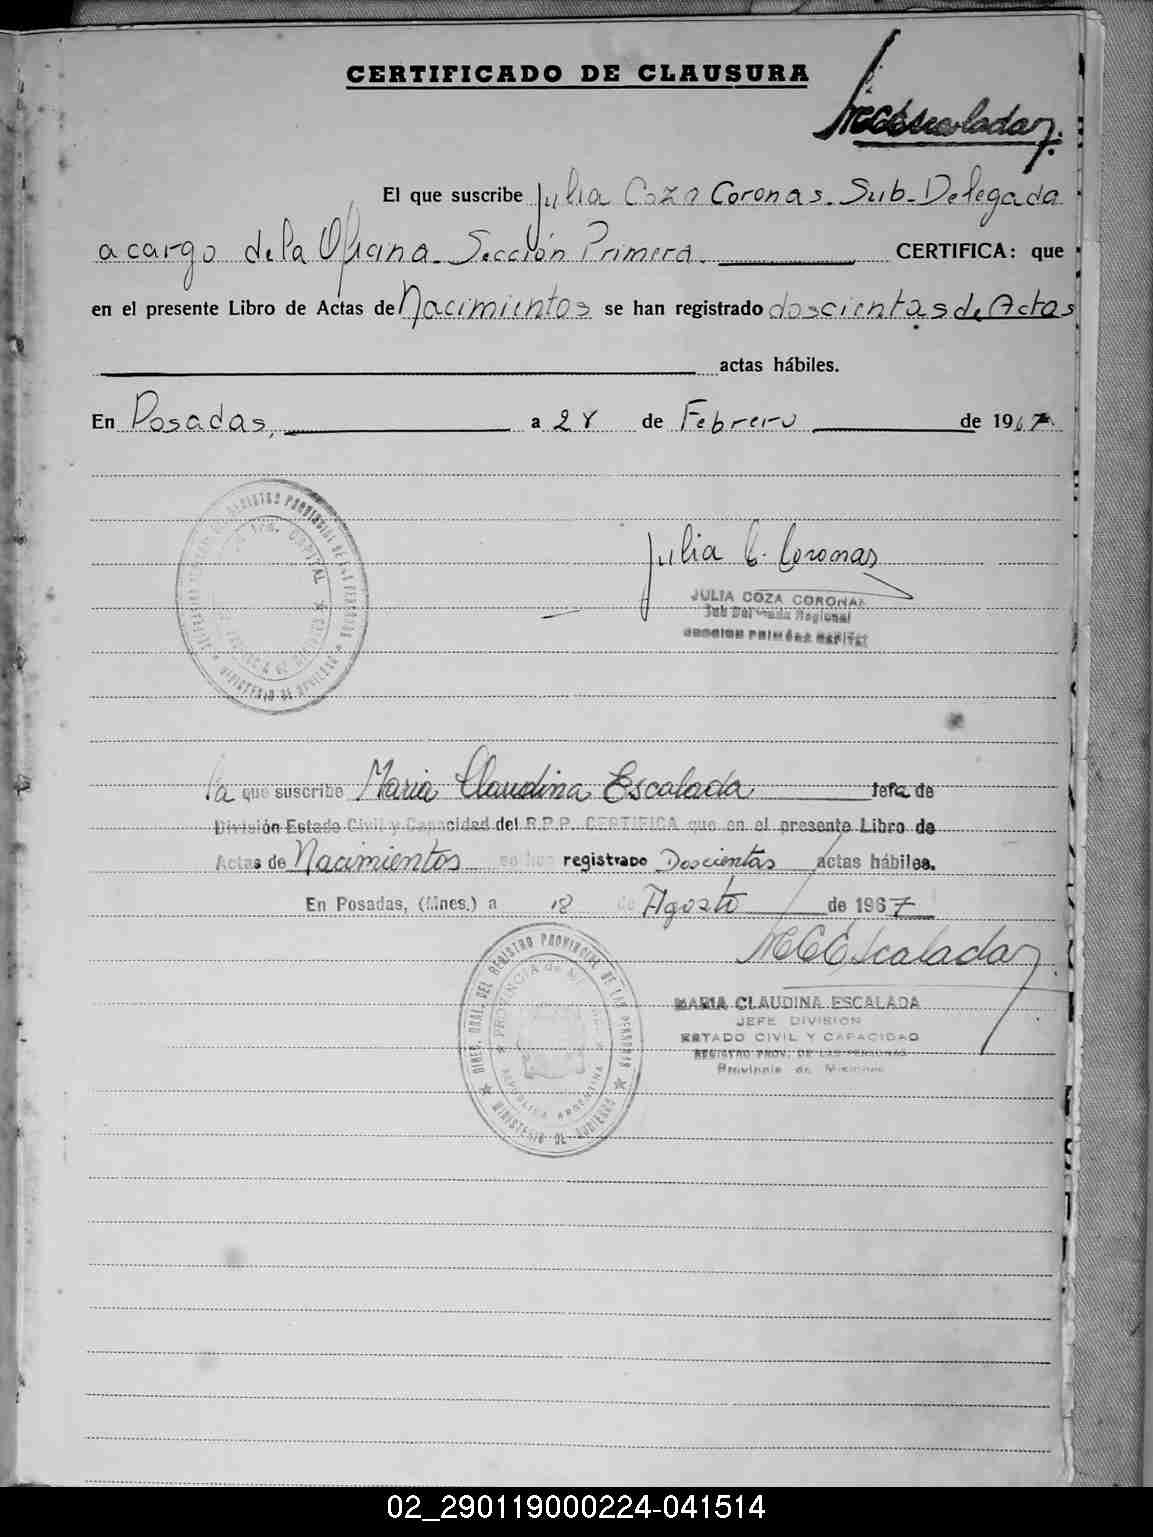 CERTIFICADO DE CLAUSURA
El que suscribe Julia Coza Coronas. Sub-Delegada
a cargo de la Oficina. Sección Primera. CERTIFICA: que
en el presente Libro de Actas de Nacimientos se han registrado doscientas de Actas
actas hábiles.
En Posadas, a 28 de Febrero de 1967
Julia C. Coronas
JULIA COZA CORONAS
Sub Delegada Regional
SECCION PRIMERA CAPITAL
la que suscribe Maria Claudina Escalada Jefa de
División Estado Civil y Capacidad del R.P.P. CERTIFICA que en el presente Libro de
Actas de Nacimientos se han registrado Doscientas actas hábiles.
En Posadas, (Mnes.) a 18 de Agosto de 1967
MCEscalada
DIREC. GRAL. DEL REGISTRO PROVINCIAL DE LAS PERSONAS
PROVINCIA de MISIONES
REPUBLICA ARGENTINA
MINISTERIO DE GOBIERNO
MARIA CLAUDINA ESCALADA
JEFE DIVISION
ESTADO CIVIL Y CAPACIDAD
REGISTRO PROV. DE LAS PERSONAS
Provincia de Misiones
02_290119000224-041514